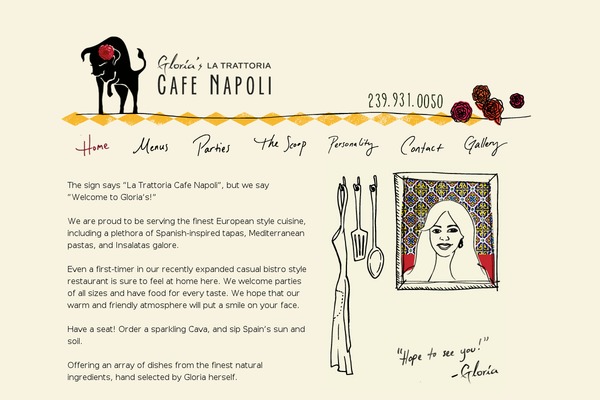 Gloria's LA TRATTORIA
CAFE NAPOLI
239.931.0050
Home Menus Parties The Scoop Personality Contact Gallery
The sign says "La Trattoria Cafe Napoli", but we say
"Welcome to Gloria's!"
We are proud to be serving the finest European style cuisine,
including a plethora of Spanish-inspired tapas, Mediterranean
pastas, and Insalatas galore.
Even a first-timer in our recently expanded casual bistro style
restaurant is sure to feel at home here. We welcome parties
of all sizes and have food for every taste. We hope that our
warm and friendly atmosphere will put a smile on your face.
Have a seat! Order a sparkling Cava, and sip Spain's sun and
soil.
Offering an array of dishes from the finest natural
ingredients, hand selected by Gloria herself.
"Hope to see you!"
-Gloria